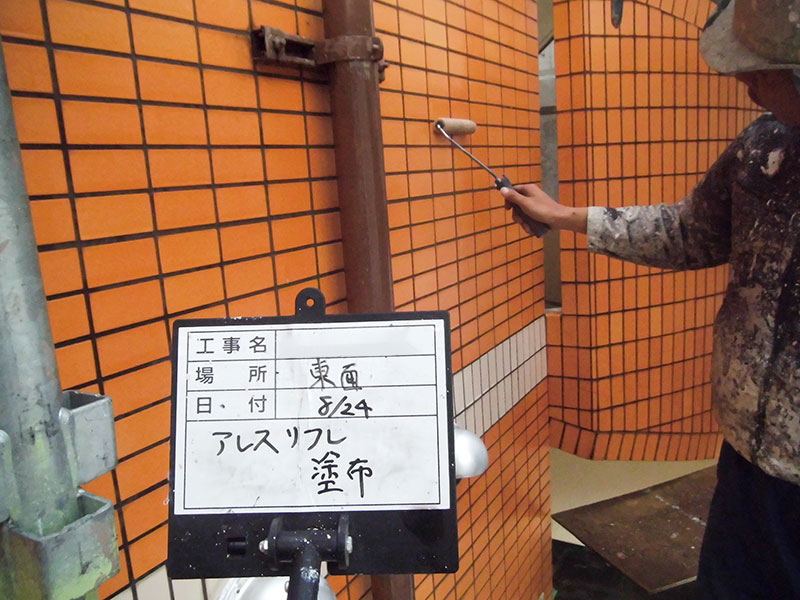 工事名
場所 東面
日・付 8/24
アレスリフレ
塗布